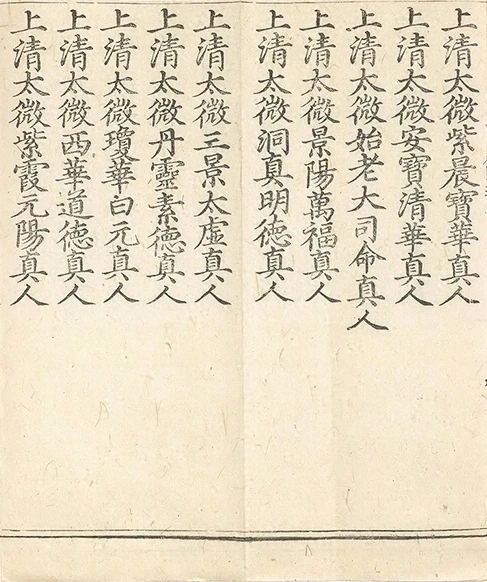 上清太微紫晨寶華真人
上清太微安寶清華真人
上清太微始老大司命真人
上清太微景陽萬福真人
上清太微洞真明德真人
上清太微三景太虛真人
上清太微丹靈素德真人
上清太微瓊華白元真人
上清太微西華道德真人
上清太微紫霞元陽真人